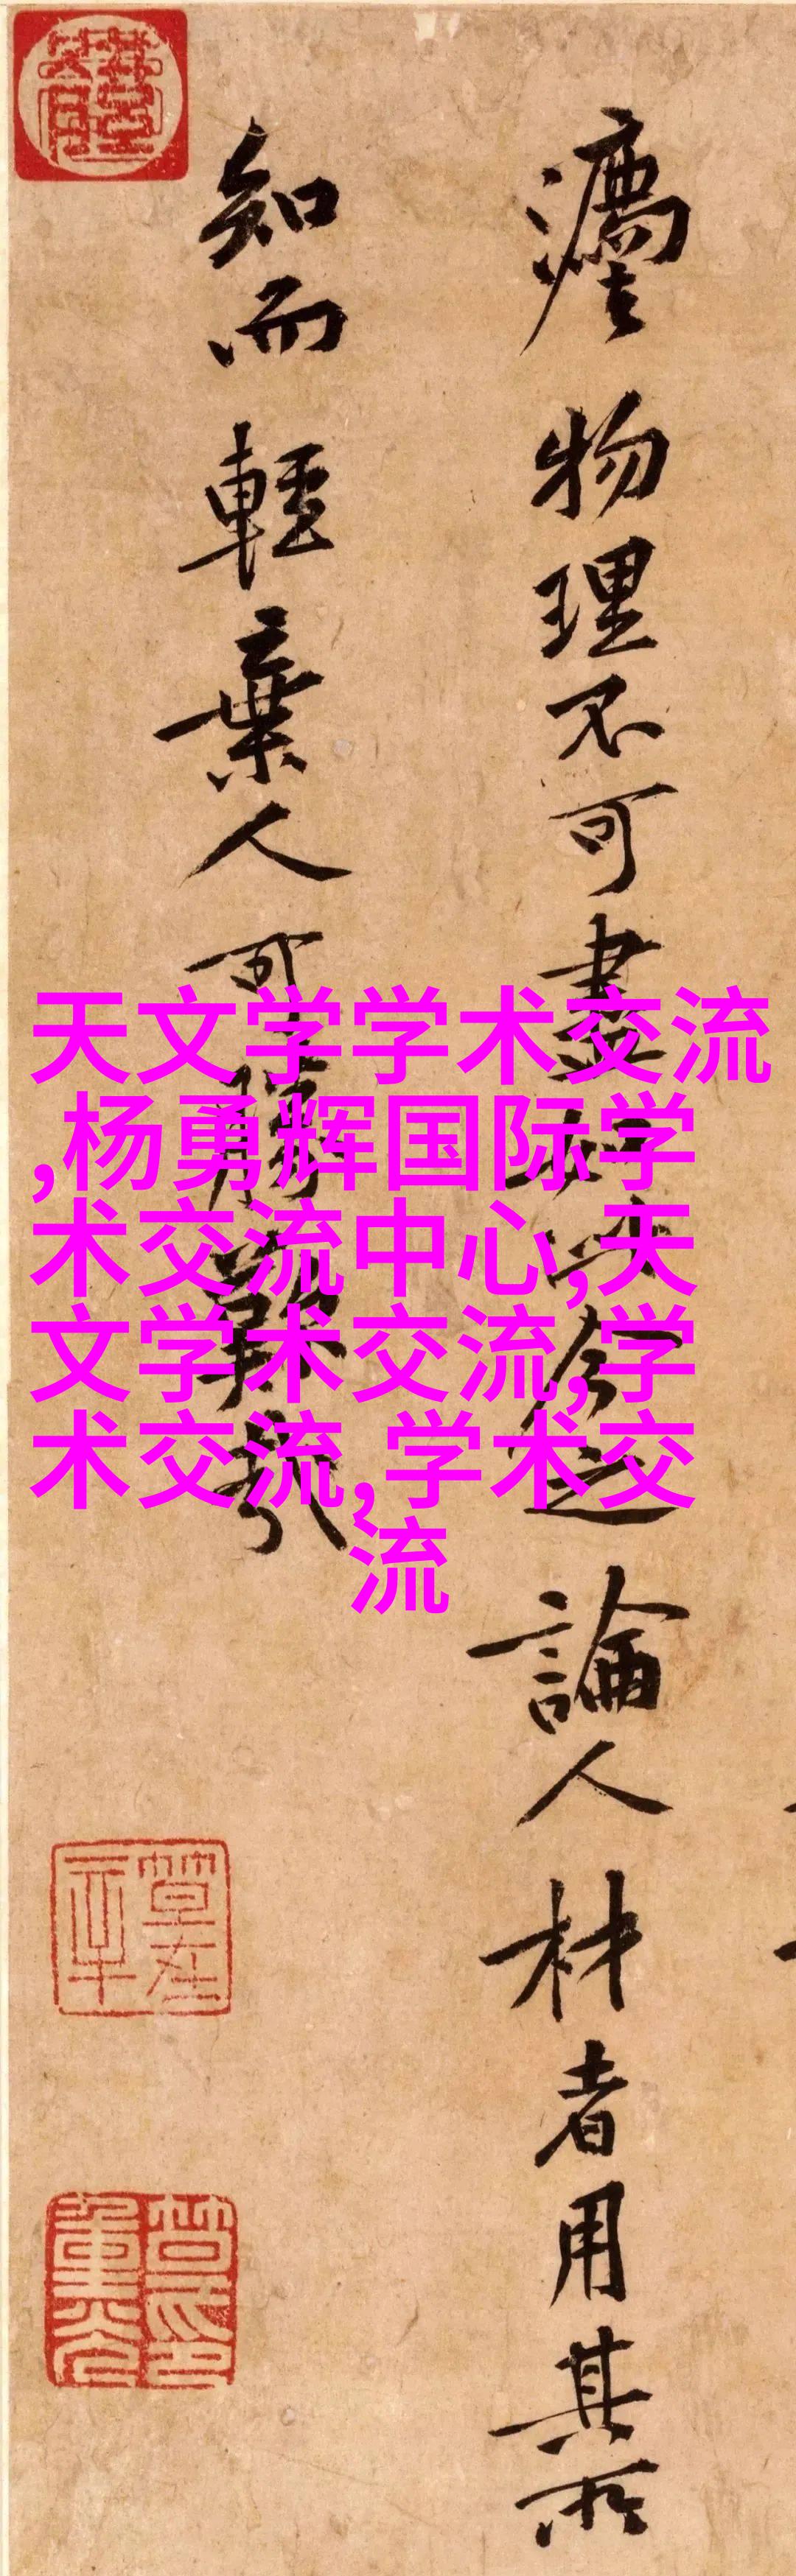 物理不可盡
今之論人材者用其所
知而輕棄人可勝歎哉
天文学学术交流
,杨勇辉国际学
术交流中心,天
文学术交流,学
术交流,学术交
流